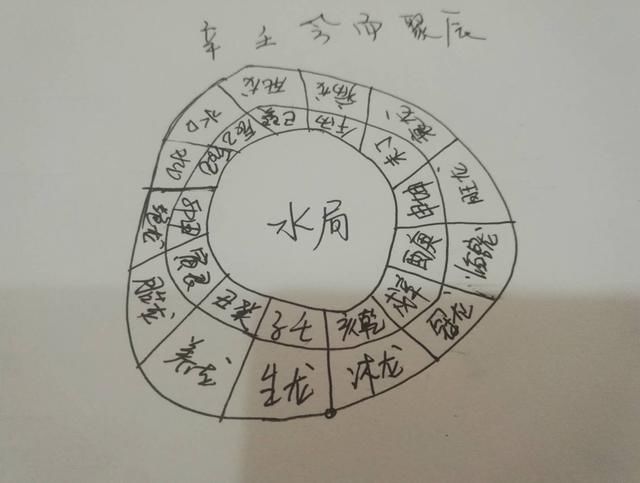 辛壬会而聚辰
死龙
病龙
衰龙
旺龙
冠龙
沐龙
生龙
养龙
胎龙
绝龙
水口
水口
巳巽
午丙
未丁
申坤
酉庚
戌辛
亥乾
子壬
寅艮
水局